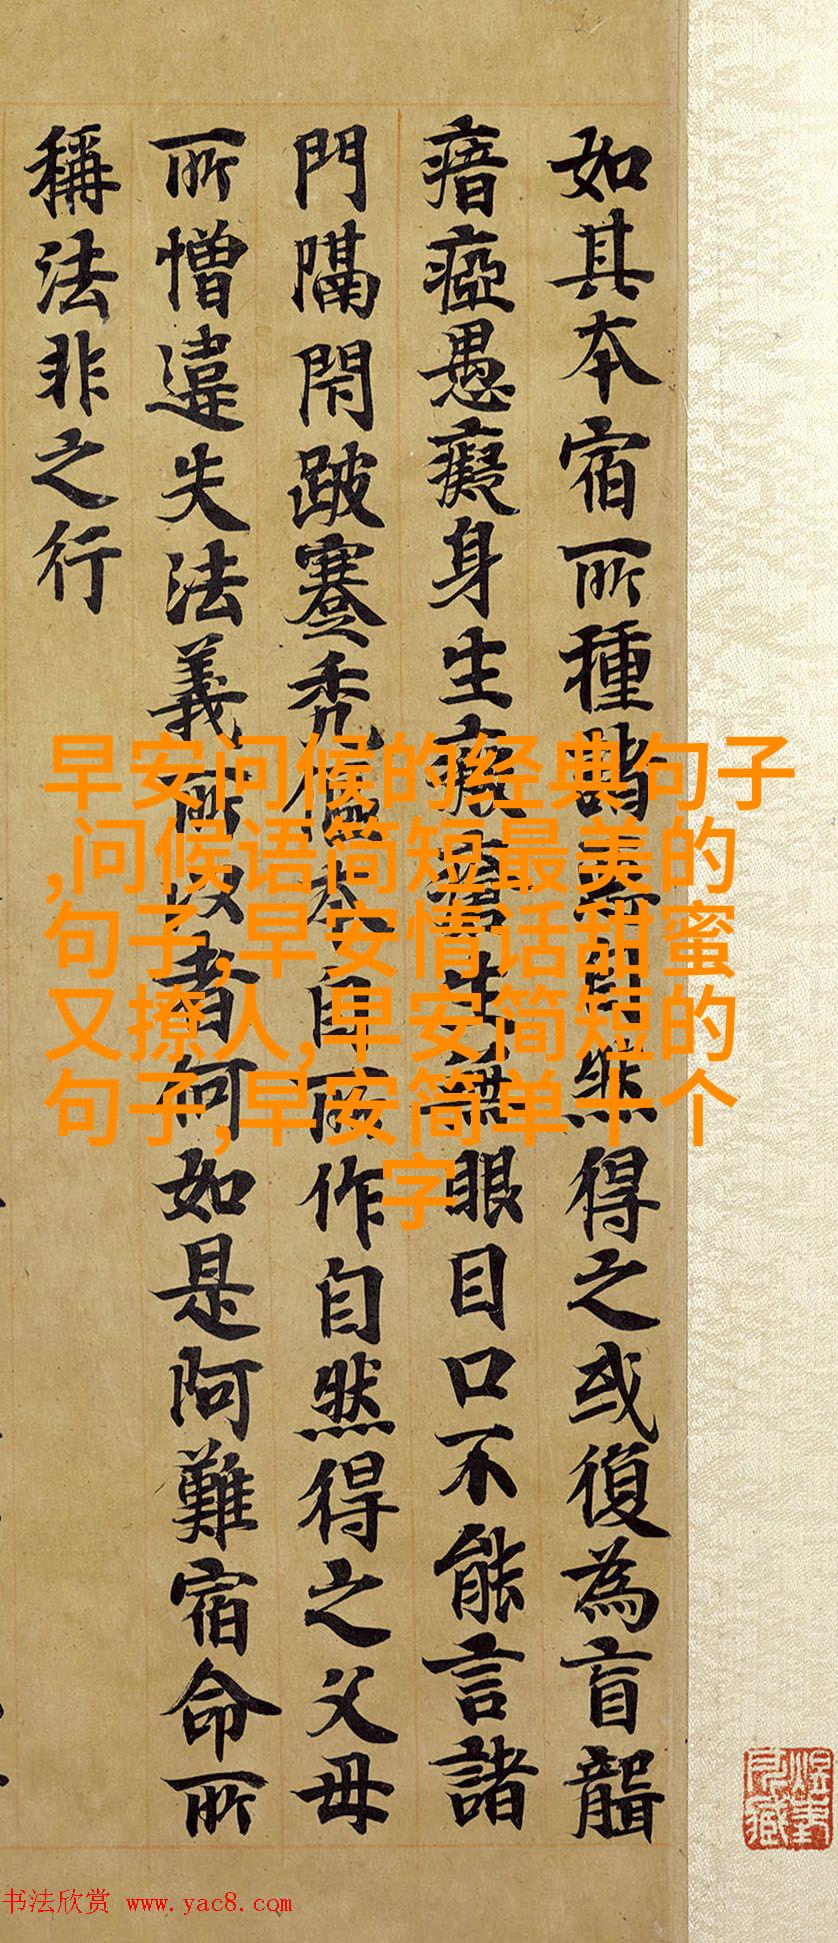 如其本宿所種諸自然得之或復為盲聾
瘖瘂愚癡身生生無眼目口不能言諸
門隔閇跛蹇禿傴本自所作自然得之父母
所憎違失法義所以者何如是阿難宿命所
稱法非之行
早安问候的经典句子
,问候语简短最美的
句子,早安情话甜蜜
又撩人,早安简短的
句子,早安简单十个
字
书法欣赏 www.yac8.com